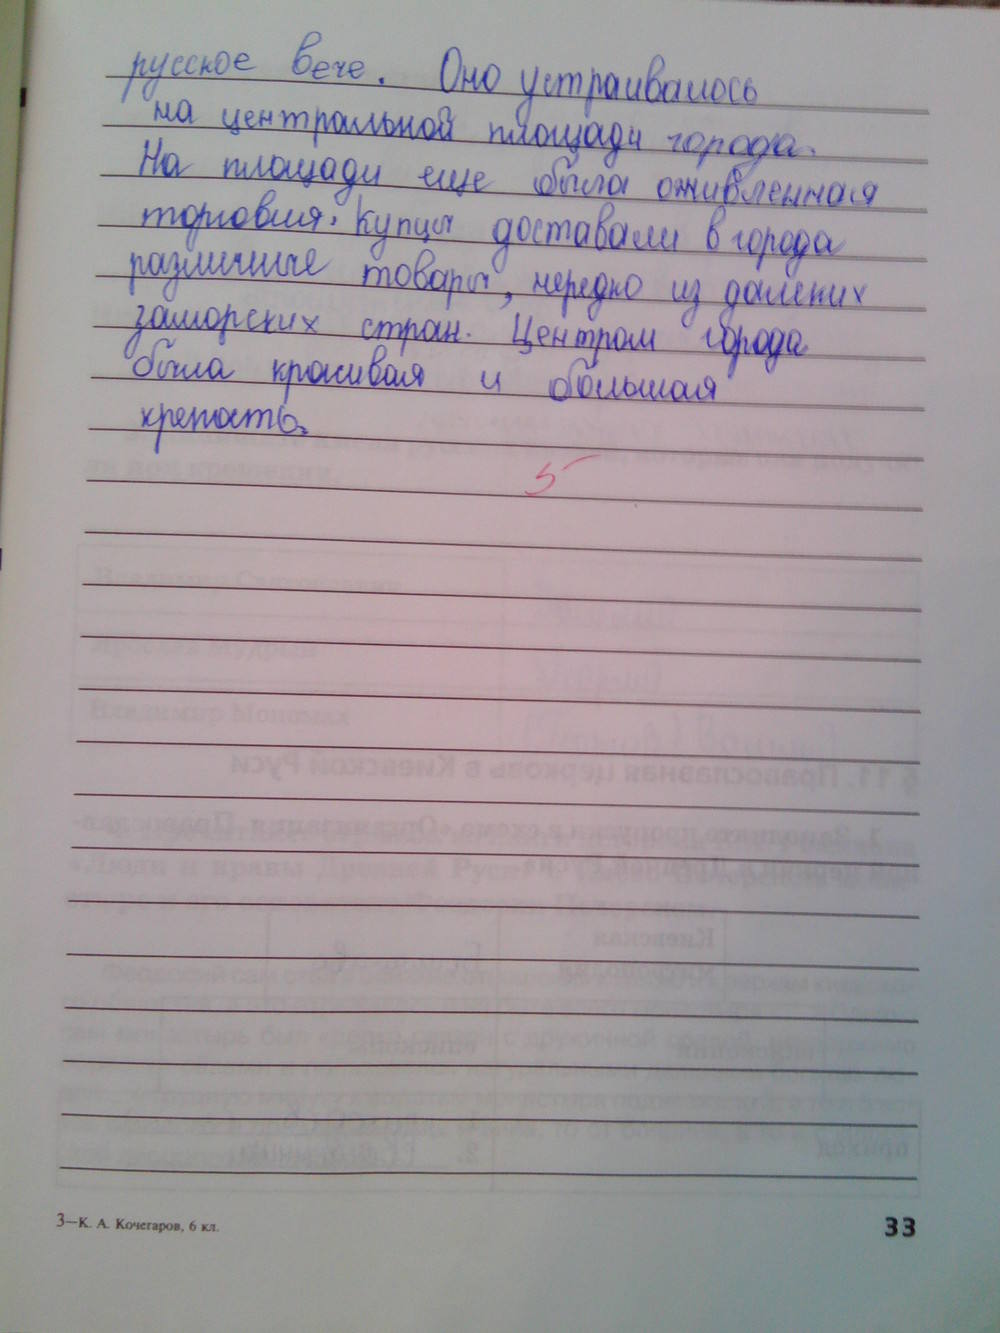 русское вече. Оно устраивалось
на центральной площади города.
На площади еще была оживленная
торговля. Купцы доставали в города
различные товары, нередко из далеких
заморских стран. Центром города
была красивая и большая
крепость.
5
3—К. А. Кочегаров, 6 кл.
33